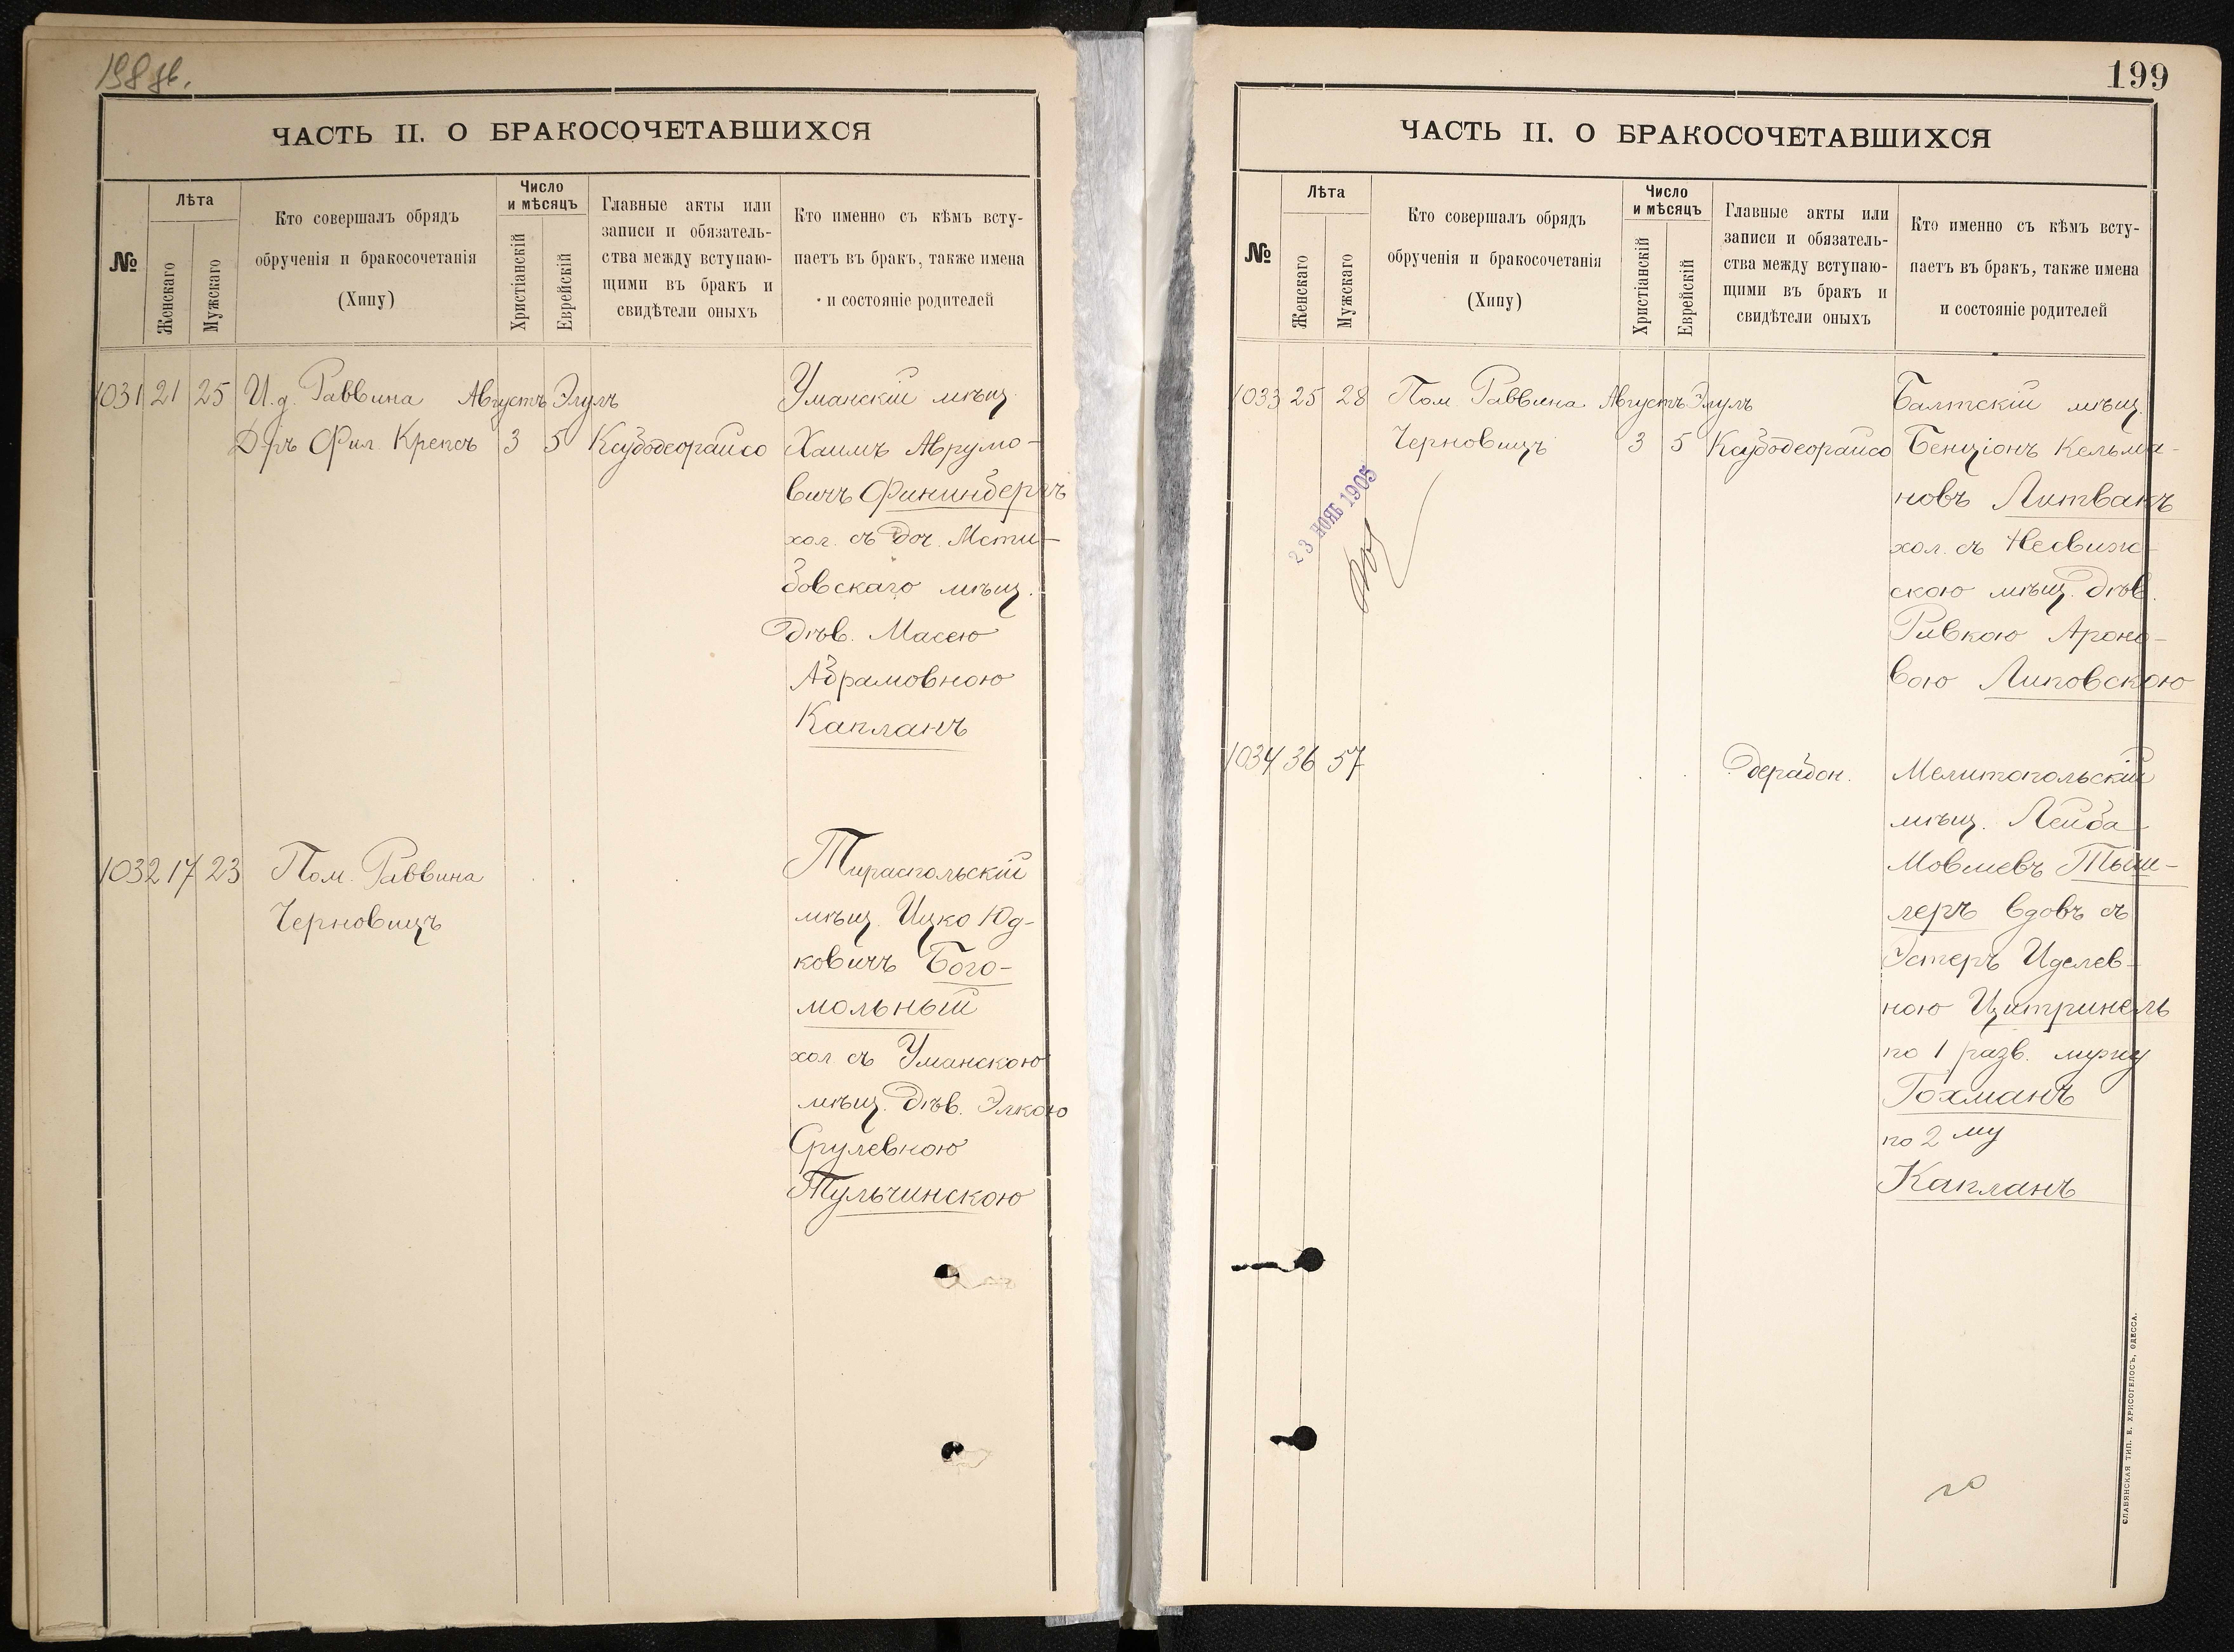 198 об.
ЧАСТЬ II. О БРАКОСОЧЕТАВШИХСЯ
№
Лѣта
Женскаго
Мужскаго
Кто совершалъ обрядъ
обрученія и бракосочетанія
(Хипу)
Число
и мѣсяцъ
Христіанскій
Еврейскій
Главные акты или
записи и обязатель-
ства между вступаю-
щими въ бракъ и
свидѣтели оныхъ
Кто именно съ кѣмъ всту-
паетъ въ бракъ, также имена
и состояніе родителей
1031 21 25 И.д. Раввина Августъ Элулъ Уманскій мѣщ.
Д-ръ Фил. Крепсъ 3 5 Ксубодеорайсо Хаимъ Аврумо-
вичъ Фининбергъ
хол. съ доч. Мсти-
бовскаго мѣщ.
дѣв. Масею
Абрамовною
Капланъ
1032 17 23 Пом. Раввина Тираспольскій
Черновицъ мѣщ. Ицко Юд-
ковичъ Бого-
мольный
хол съ Уманскою
мѣщ. дѣв. Элкою
Срулевною
Тульчинскою
199
ЧАСТЬ II. О БРАКОСОЧЕТАВШИХСЯ
№
Лѣта
Женскаго
Мужскаго
Кто совершалъ обрядъ
обрученія и бракосочетанія
(Хипу)
Число
и мѣсяцъ
Христіанскій
Еврейскій
Главные акты или
записи и обязатель-
ства между вступаю-
щими въ бракъ и
свидѣтели оныхъ
Кто именно съ кѣмъ всту-
паетъ въ бракъ, также имена
и состояніе родителей
1033 25 28 Пом. Раввина Августъ Элулъ Балтскій мѣщ.
Черновицъ 3 5 Ксубодеорайсо Бенціонъ Кельма-
новъ Литвакъ
23 НОЯБ 1905
хол. съ Несвиж-
скою мѣщ. дѣв.
Ривкою Ароно-
вою Липовскою
1034 36 57 дерабон. Мелитопольскій
мѣщ. Лейба-
Мовшевъ Тыш-
леръ вдовъ съ
Эстеръ Иделев-
ною Цитринель
по 1 разв. мужу
Гохманъ
по 2 му
Капланъ
СЛАВЯНСКАЯ ТИП. Е. ХРИСОГЕЛОСЪ, ОДЕССА.